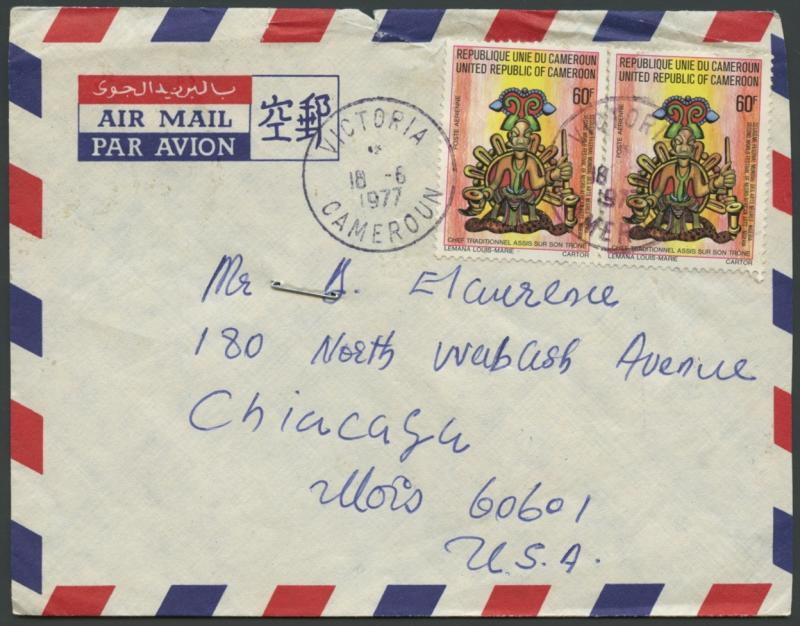 بالبريد الجوى
AIR MAIL
PAR AVION
空郵
VICTORIA
18 -6
1977
CAMEROUN
REPUBLIQUE UNIE DU CAMEROUN
UNITED REPUBLIC OF CAMEROON
60F
POSTE AERIENNE
CHEF TRADITIONNEL ASSIS SUR SON TRÔNE
LEMANA LOUIS-MARIE CARTOR
REPUBLIQUE UNIE DU CAMEROUN
UNITED REPUBLIC OF CAMEROON
60F
POSTE AERIENNE
CHEF TRADITIONNEL ASSIS SUR SON TRÔNE
LEMANA LOUIS-MARIE CARTOR
Mr B. Elaurence
180 North Wabash Avenue
Chiacaga
Illois 60601
U.S.A.